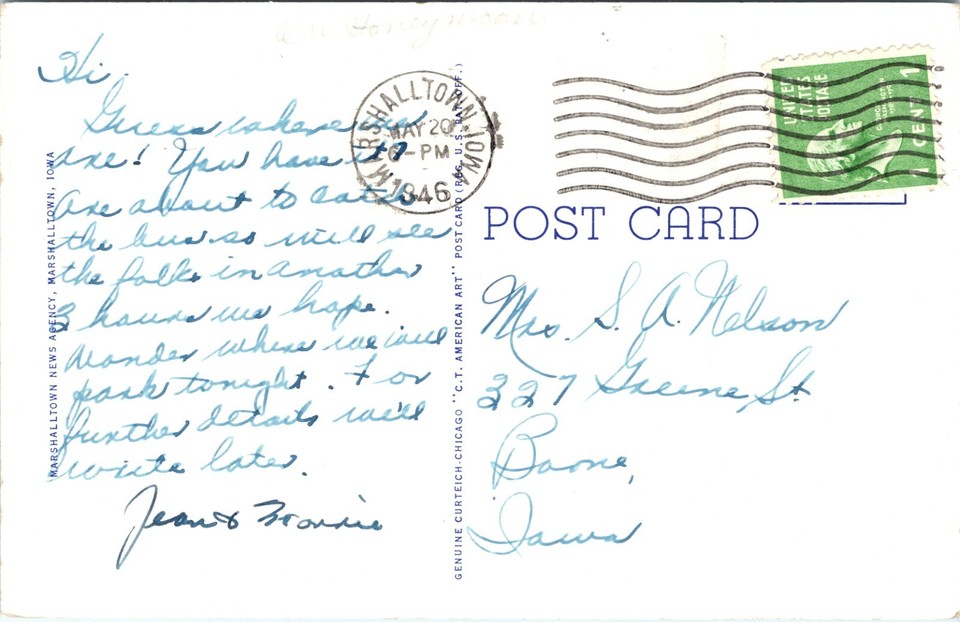 on Honeymoon
Hi,
Guess where we
are! You have it?
Are about to catch
the bus so will see
the folks in another
3 hours we hope.
Wonder where we will
park tonight. For
further details we'll
write later.
Jean &
MARSHALLTOWN NEWS AGENCY, MARSHALLTOWN, IOWA
MARSHALLTOWN IOWA
MAY 20
6-PM
1946
GENUINE CURTEICH-CHICAGO "C.T. AMERICAN ART" POST CARD (REG. U.S. PAT. OFF.)
UNITED
STATES
POSTAGE
1
CENT
POST CARD
Mrs. S. A. Nelson
327 Greene St
Boone,
Iowa